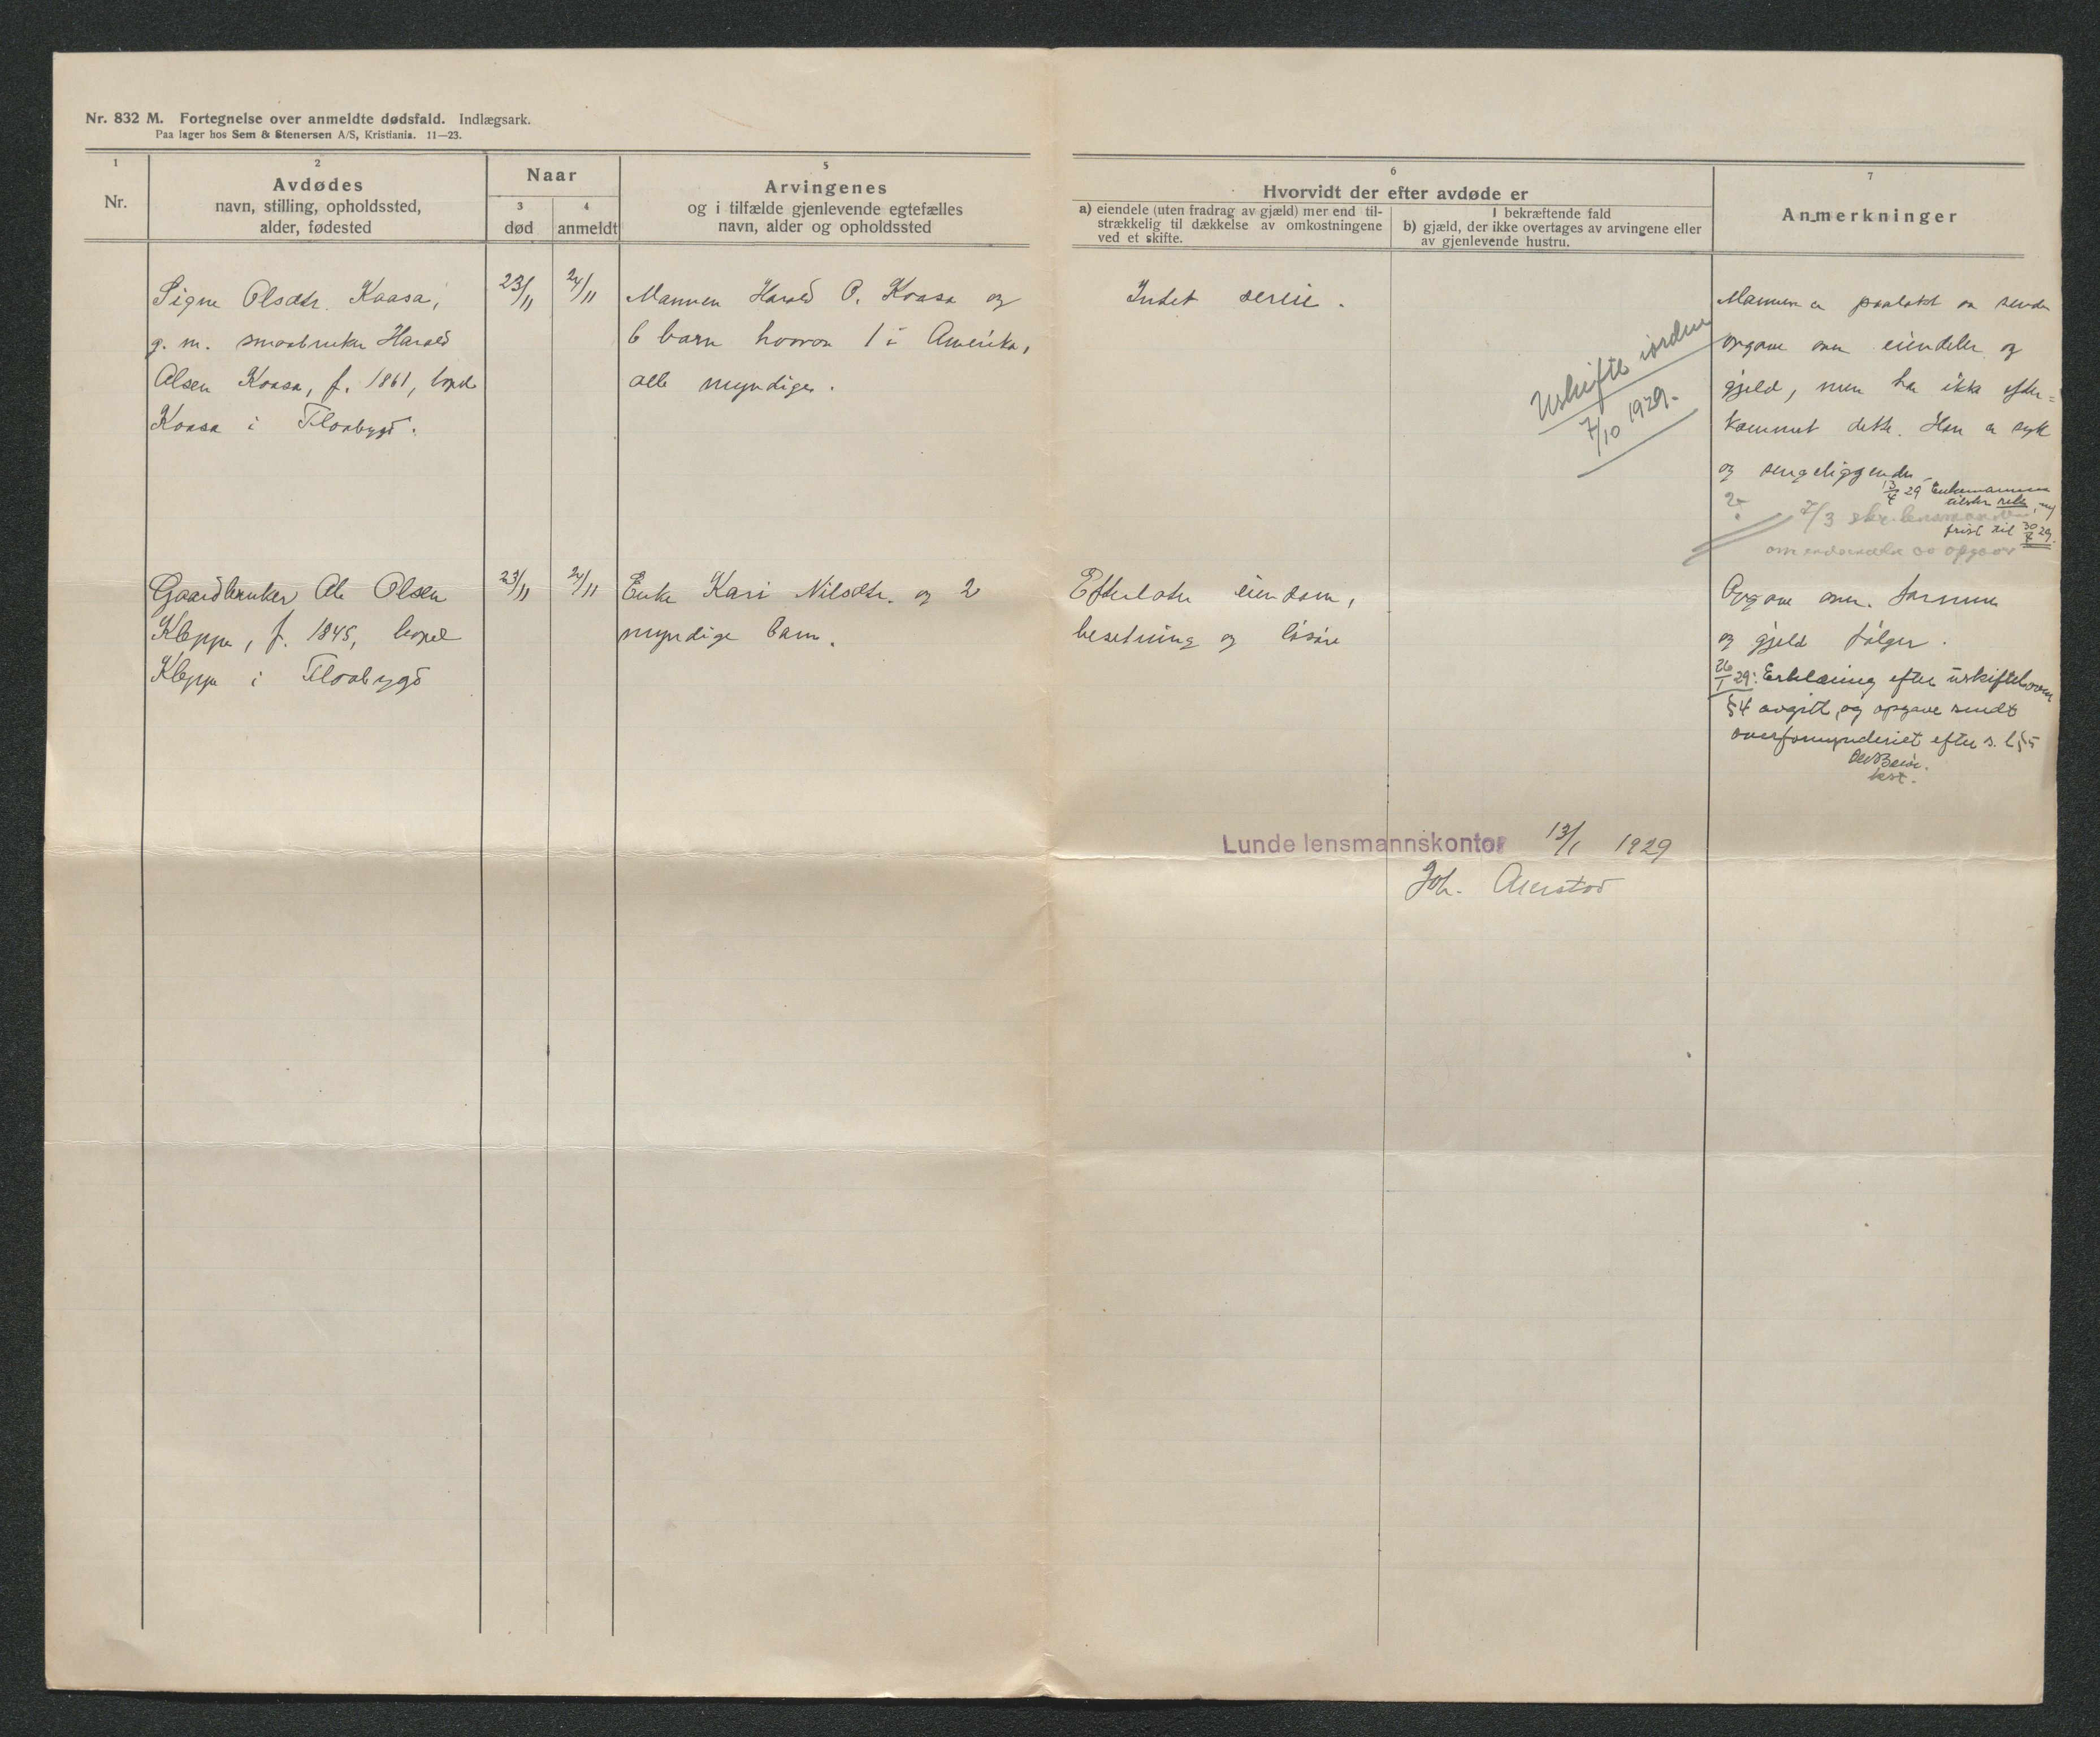 Nr. 832 M. Fortegnelse over anmeldte dødsfald. Indlægsark.
Paa lager hos Sem & Stenersen A/S, Kristiania. 11—23.
1
Nr.
2
Avdødes
navn, stilling, opholdssted,
alder, fødested
Naar
3
død
4
anmeldt
5
Arvingenes
og i tilfælde gjenlevende egtefælles
navn, alder og opholdssted
6
Hvorvidt der efter avdøde er
a) eiendele (uten fradrag av gjæld) mer end til-
strækkelig til dækkelse av omkostningene
ved et skifte.
I bekræftende fald
b) gjæld, der ikke overtages av arvingene eller
av gjenlevende hustru.
7
Anmerkninger
Signe Olsdtr. Kaasa,
g. m. smaabruker Harald
Olsen Kaasa, f. 1861, bopel
Kaasa i Flaabygd.
23/11
24/11
Mannen Harald O. Kaasa og
6 barn hvorav 1 i Amerika,
alle myndige.
Intet
Uskifte iorden
7/10 1929.
Mannen er paalakt aa sende
opgave over eiendeler og
gjeld, men har ikke efter=
kommet dette. Han er syk
og sengeliggende
13/4 29 Enkemannen
frist til 30/4 29.
7/3 skr. lensmannen
om opgave
Gaardbruker Ole Olsen
Kleppe, f. 1845, bopel
Kleppe i Flaabygd
23/11
24/11
Enke Kari Nilsdtr. og 2
myndige barn.
Efterlater eiendom,
besetning og løsøre
Opgave over formue
og gjeld følger.
26/1 29: Erklæring efter uskifteloven
§ 4 avgitt, og opgave sendt
overformynderiet efter s. l § 5
Lunde lensmannskontor 13/1 1929
Joh.